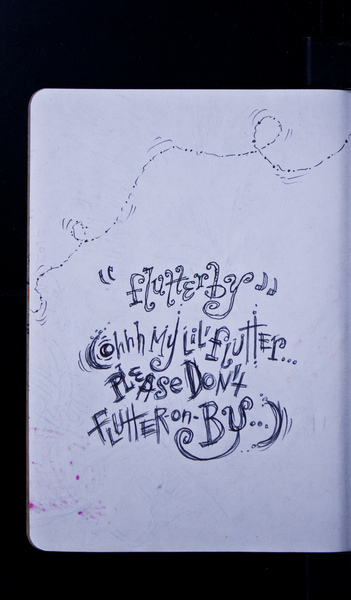 "flutterby"
(ohhh My Lil' flutter...
PLEASe DON't
FLUTTER on-By...)